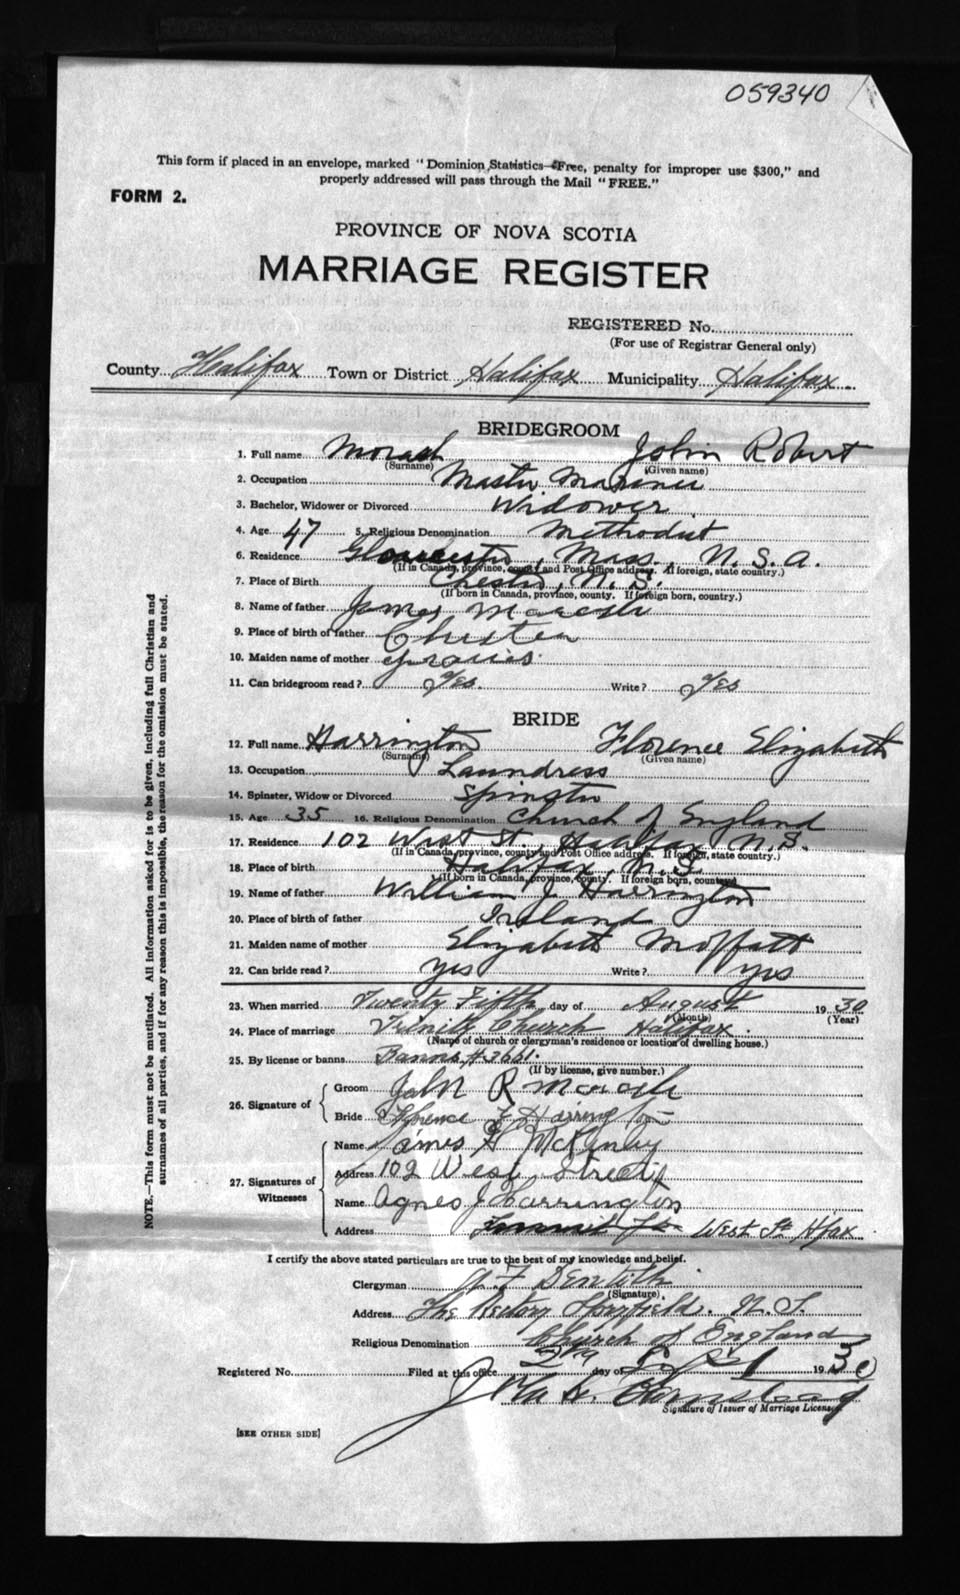 059340
This form if placed in an envelope, marked "Dominion Statistics—Free, penalty for improper use $300," and
properly addressed will pass through the Mail "FREE."
FORM 2.
PROVINCE OF NOVA SCOTIA
MARRIAGE REGISTER
REGISTERED No.
(For use of Registrar General only)
County Halifax Town or District Halifax Municipality Halifax
BRIDEGROOM
1. Full name Morash John Robert
(Surname) (Given name)
2. Occupation Master Mariner
3. Bachelor, Widower or Divorced Widower
4. Age 47 5. Religious Denomination Methodist
6. Residence Gloucester, Mass. U.S.A.
(If in Canada, province, county and Post Office address. If foreign, state country.)
7. Place of Birth Chester, N.S.
(If born in Canada, province, county. If foreign born, country.)
8. Name of father James Morash
9. Place of birth of father Chester
10. Maiden name of mother
11. Can bridegroom read? Yes. Write? Yes
BRIDE
12. Full name Harrington Florence Elizabeth
(Surname) (Given name)
13. Occupation Laundress
14. Spinster, Widow or Divorced Spinster
15. Age 35 16. Religious Denomination Church of England
17. Residence 102 West St., Halifax N.S.
(If in Canada, province, county and Post Office address. If foreign, state country.)
18. Place of birth Halifax, N.S.
(If born in Canada, province, county. If foreign born, country)
19. Name of father William J Harrington
20. Place of birth of father Ireland
21. Maiden name of mother Elizabeth Moffatt
22. Can bride read? yes Write? yes
23. When married Twenty Fifth day of August 1930
(Month) (Year)
24. Place of marriage Trinity Church Halifax.
(Name of church or clergyman's residence or location of dwelling house.)
25. By license or banns Banns #3661.
(If by license, give number.)
26. Signature of Groom John R Morash
Bride Florence E Harrington
27. Signatures of Witnesses Name James H McKinley
Address 102 West Street
Name Agnes J Harrington
Address West St Hfax
I certify the above stated particulars are true to the best of my knowledge and belief.
Clergyman
(Signature).
Address The Rectory N.S.
Religious Denomination Church of England
Registered No. Filed at this office day of 1930
Signature of Issuer of Marriage Licenses
[SEE OTHER SIDE]
NOTE.—This form must not be mutilated. All information asked for is to be given, including full Christian and
surnames of all parties, and if for any reason this is impossible, the reason for the omission must be stated.